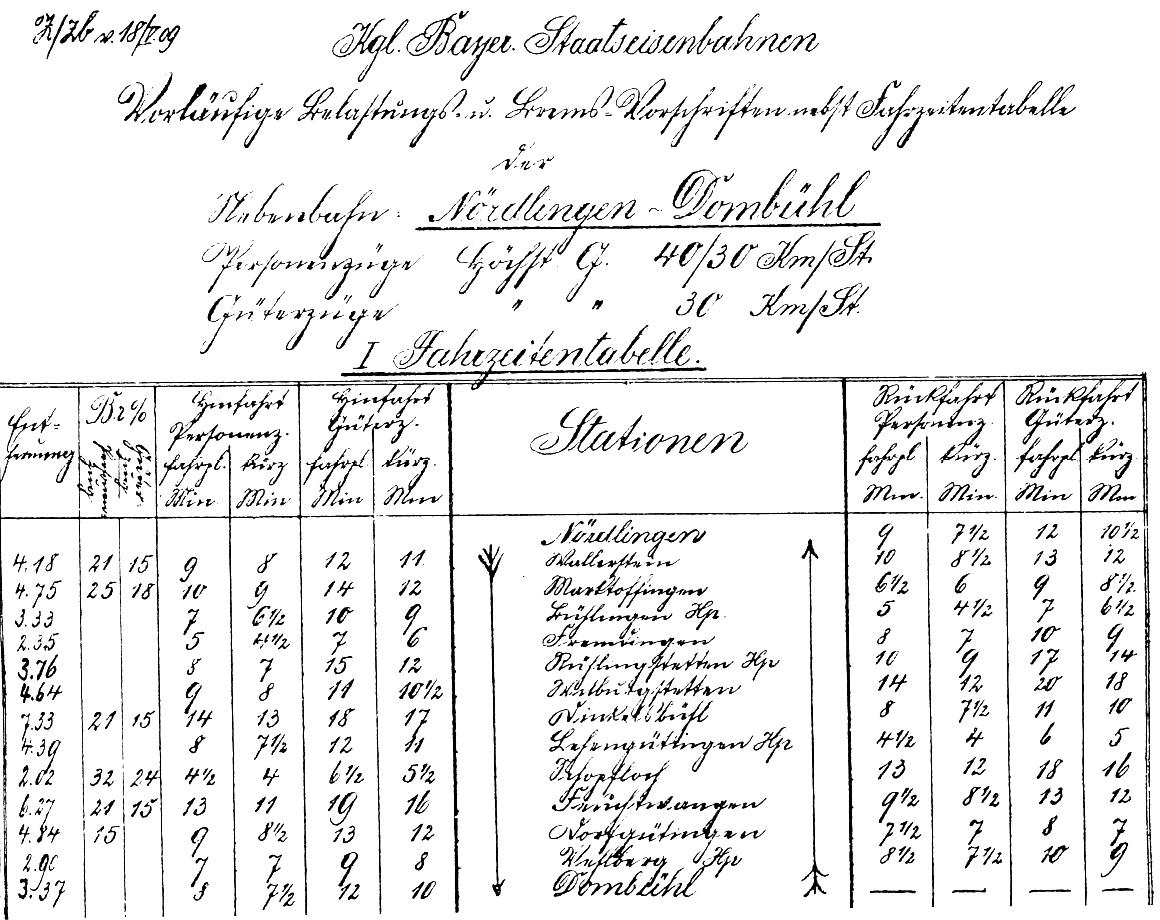 Z/Zb v. 18/V 09
Kgl. Bayer. Staatseisenbahnen
Vorläufige Belastungs- u. Brems-Vorschriften nebst Fahrzeitentabelle
der
Nebenbahn: Nördlingen - Dombühl
Personenzüge Höchst G. 40/30 Km/St.
Güterzüge " " 30 Km/St.
I Fahrzeitentabelle.
Entfernung Br % Hinfahrt Personenz. Hinfahrt Güterz. Stationen Rückfahrt Personenz. Rückfahrt Güterz.
fahrpl. kürz fahrpl. kürz. fahrpl kürz. fahrpl kürz.
Min Min Min Min Min. Min. Min Min
Nördlingen 9 7 1/2 12 10 1/2
4.18 21 15 9 8 12 11 Wallerstein 10 8 1/2 13 12
4.75 25 18 10 9 14 12 Marktoffingen 6 1/2 6 9 8 1/2
3.33 7 6 1/2 10 9 Bühlingen Hp. 5 4 1/2 7 6 1/2
2.35 5 4 1/2 7 6 Fremdingen 8 7 10 9
3.76 8 7 15 12 Rühlingstetten Hp 10 9 17 14
4.64 9 8 11 10 1/2 Wilburgstetten 14 12 20 18
7.33 21 15 14 13 18 17 Dinkelsbühl 8 7 1/2 11 10
4.39 8 7 1/2 12 11 Lehengüttingen Hp 4 1/2 4 6 5
2.02 32 24 4 1/2 4 6 1/2 5 1/2 Schopfloch 13 12 18 16
6.27 21 15 13 11 19 16 Feuchtwangen 9 1/2 8 1/2 13 12
4.84 15 9 8 1/2 13 12 Dorfgütingen 7 1/2 7 8 7
2.90 7 7 9 8 Vehlberg Hp 8 1/2 7 1/2 10 9
3.37 8 7 1/2 12 10 Dombühl — — — —